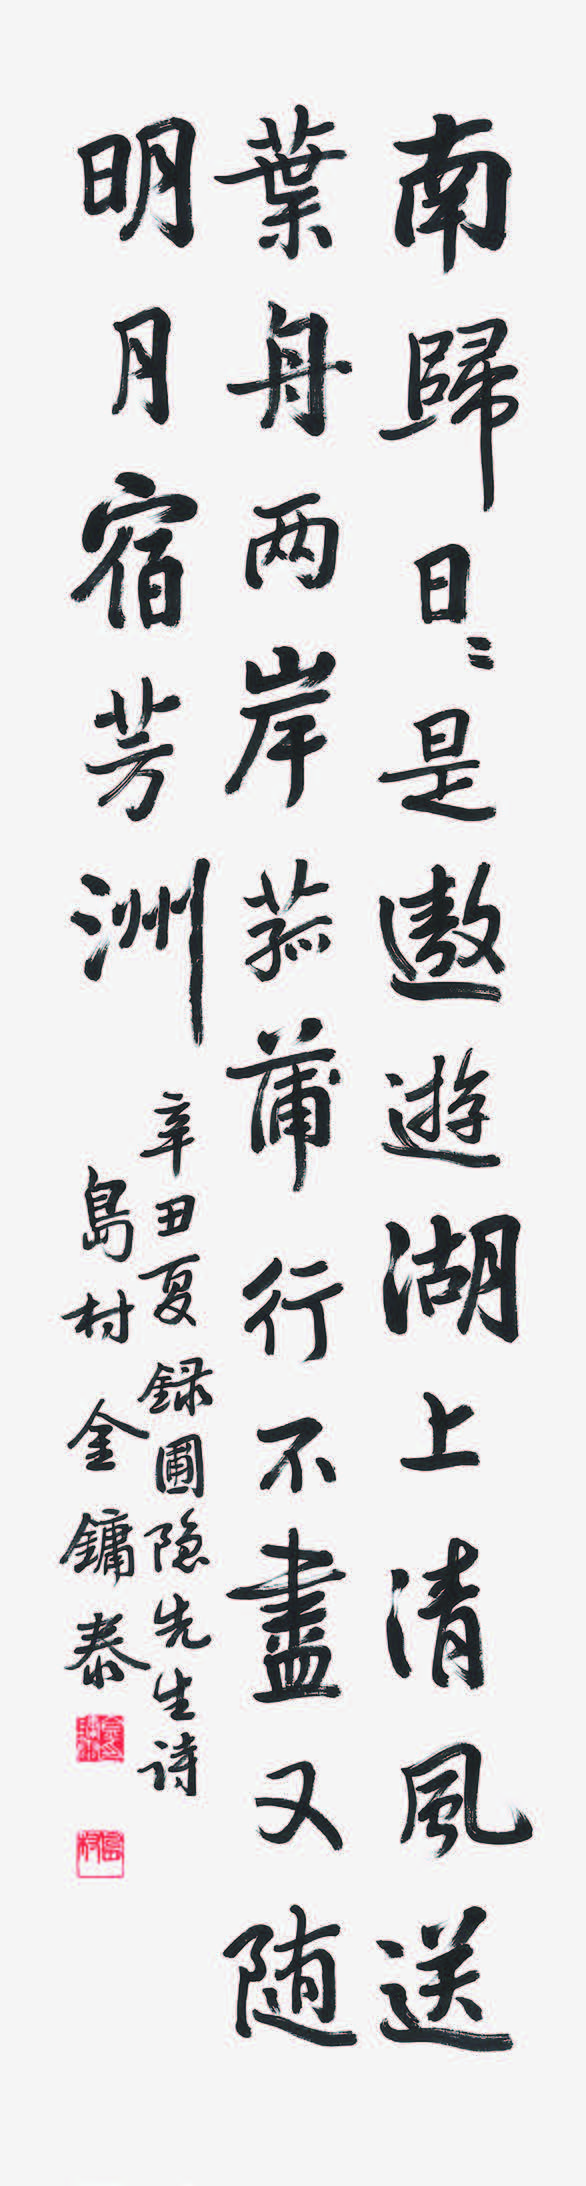 南歸日〻是遨遊湖上清風送
葉舟两岸菰蒲行不盡又随
明月宿芳洲
辛丑夏録圃隐先生詩
島村金鏞泰
島村